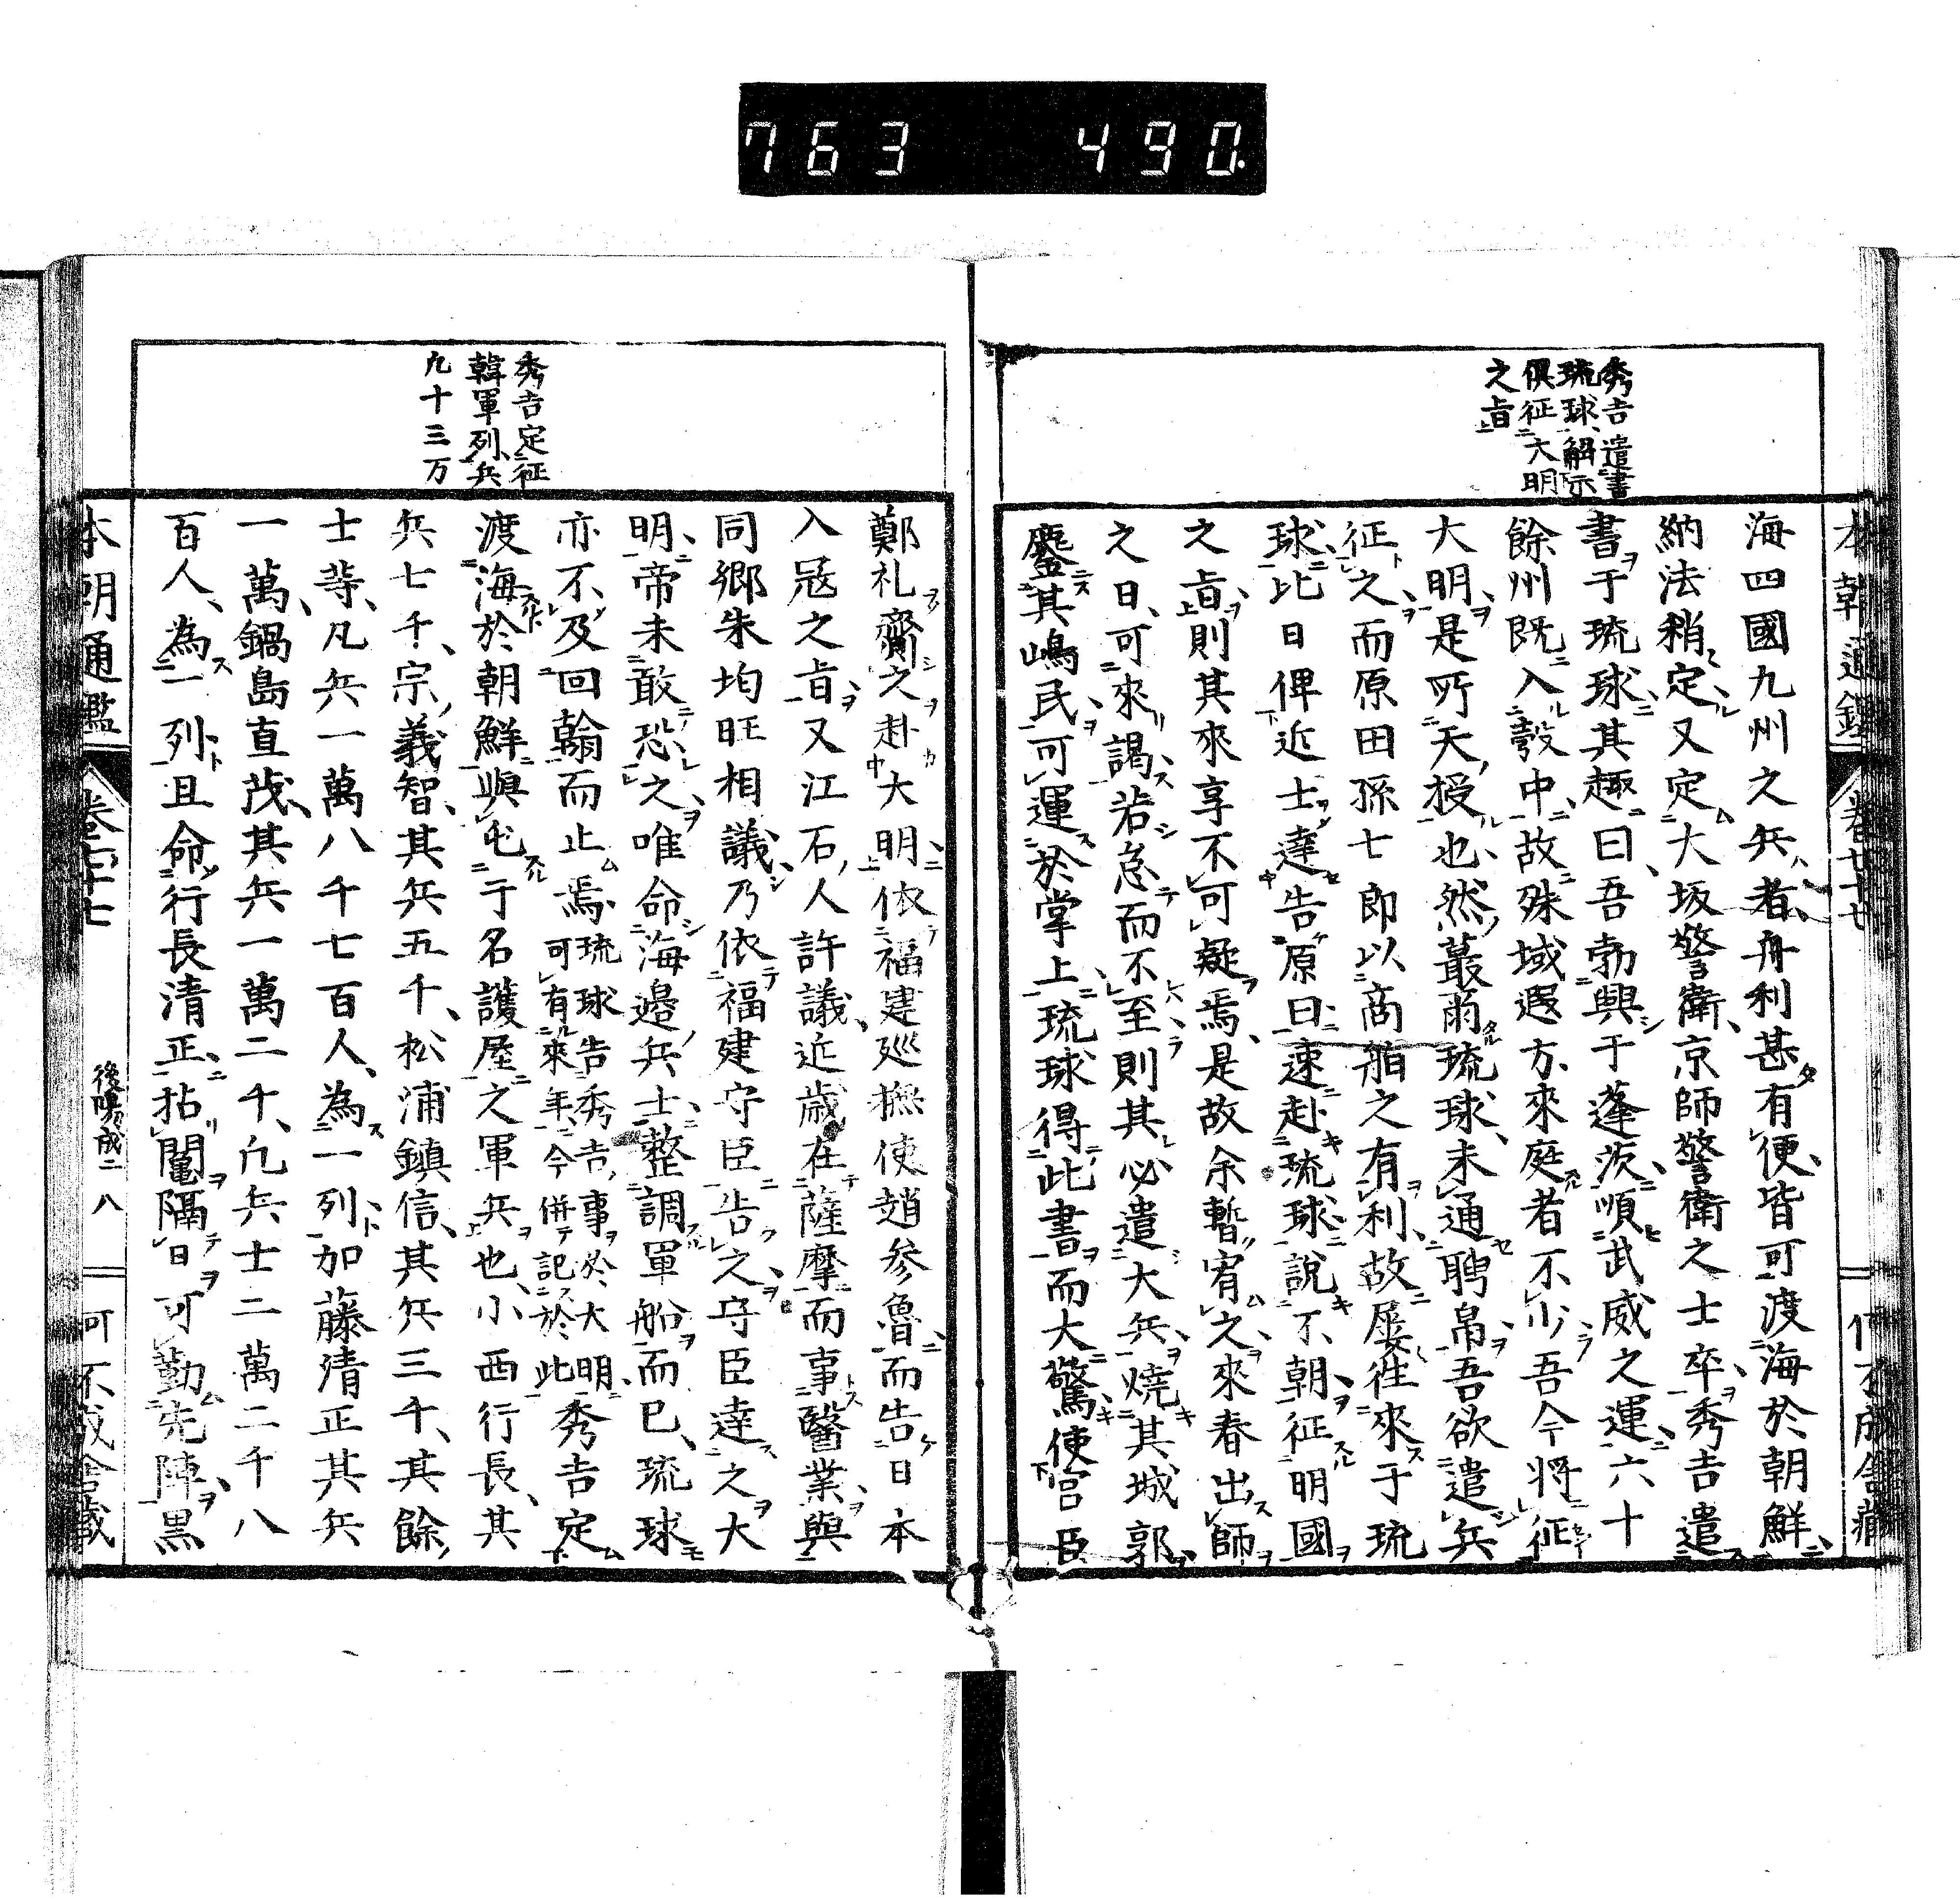 763 490
秀吉遣書
琉球觧示
俱征大明
之㫖
海四國九州之兵者舟利甚有便皆可渡海於朝鮮
納法稍定又定大坂警衛京師警衛之士卒秀吉遣
書于琉球其趣曰吾勃興于蓬茨順武威之運六十
餘州既入彀中故殊域遐方來庭者不少吾今將征
大明是所天授也然蕞爾琉球未通聘帛吾欲遣兵
征之而原田孫七郎以商舶之有利故屢往來于琉
球比日俾近士達告原曰速赴琉球說不朝征明國
之㫖則其來享不可疑焉是故余暫宥之來春出師
之日可來謁若怠而不至則其必遣大兵燒其城郭
鏖其嶋民可運於掌上琉球得此書而大驚使官臣
秀吉定征
韓軍列兵
九十三万
鄭礼齎之赴大明依福建廵撫使趙参魯而告日本
入冦之㫖又江石人許議近歲在薩摩而事醫業與
同鄉朱均旺相議乃依福建守臣告之守臣達之大
明帝未敢恐之唯命海邉兵士整調軍船而已琉球
亦不及回翰而止焉琉球告秀吉事於大明可有來年今併記於此秀吉定
渡海於朝鮮與屯于名護屋之軍兵也小西行長其
兵七千宗義智其兵五千松浦鎮信其兵三千其餘
士等凡兵一萬八千七百人為一列加藤清正其兵
一萬鍋島直茂其兵一萬二千凡兵士二萬二千八
百人為一列且命行長清正拈鬮隔日可勤先陣黒
本朝通鑑
卷七十七
後陽成二 八
可不成舎藏